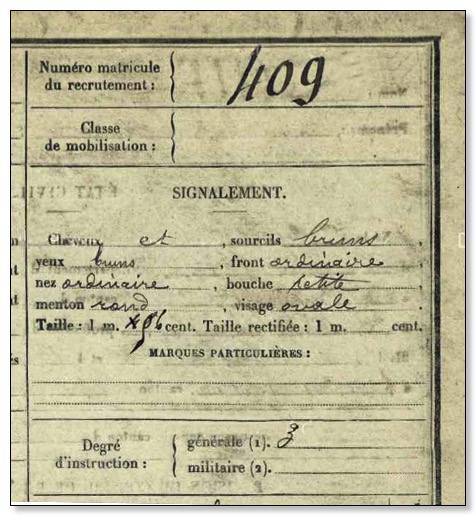 Numéro matricule
du recrutement : 409
Classe
de mobilisation :
SIGNALEMENT.
Cheveux et , sourcils bruns ,
yeux bruns , front ordinaire ,
nez ordinaire , bouche petite ,
menton rond , visage ovale
Taille : 1 m. cent. Taille rectifiée : 1 m. cent.
MARQUES PARTICULIÈRES :
Degré
d'instruction :
générale (1). 3
militaire (2).